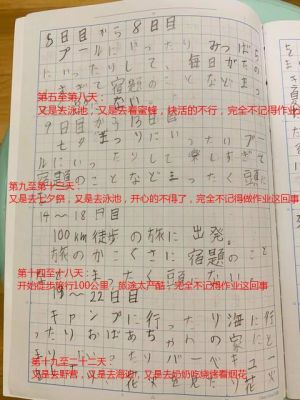 5日目から8日目
プールにいったりみつばち
にいったりして、毎日がたの
きて宿題のことなどまっ
ない
第五至第八天：
又是去泳池，又是去看蜜蜂，快活的不行，完全不记得作业
9日目から13日目
七夕まつりにいったいプー
ルにいったりして楽しすぎて
宿題のことなどまったく頭
第九至第十三天：
又是去七夕祭，又是去泳池，开心的不得了，完全不记得做作业这回事
14～18日目
100km徒歩の旅に出発。
旅のかこくさに宿題のこと
まったく頭ない。
第十四至十八天：
开始徒步旅行100公里，旅途太严酷，完全不记得做作业这回事
19～22日目
キャンプに行ったり海に行
ったりおばあちゃんの家に
バーベキュー
花火
第十九至二十二天：
又是去野营，又是去海边，又是去奶奶吃烧烤看烟花